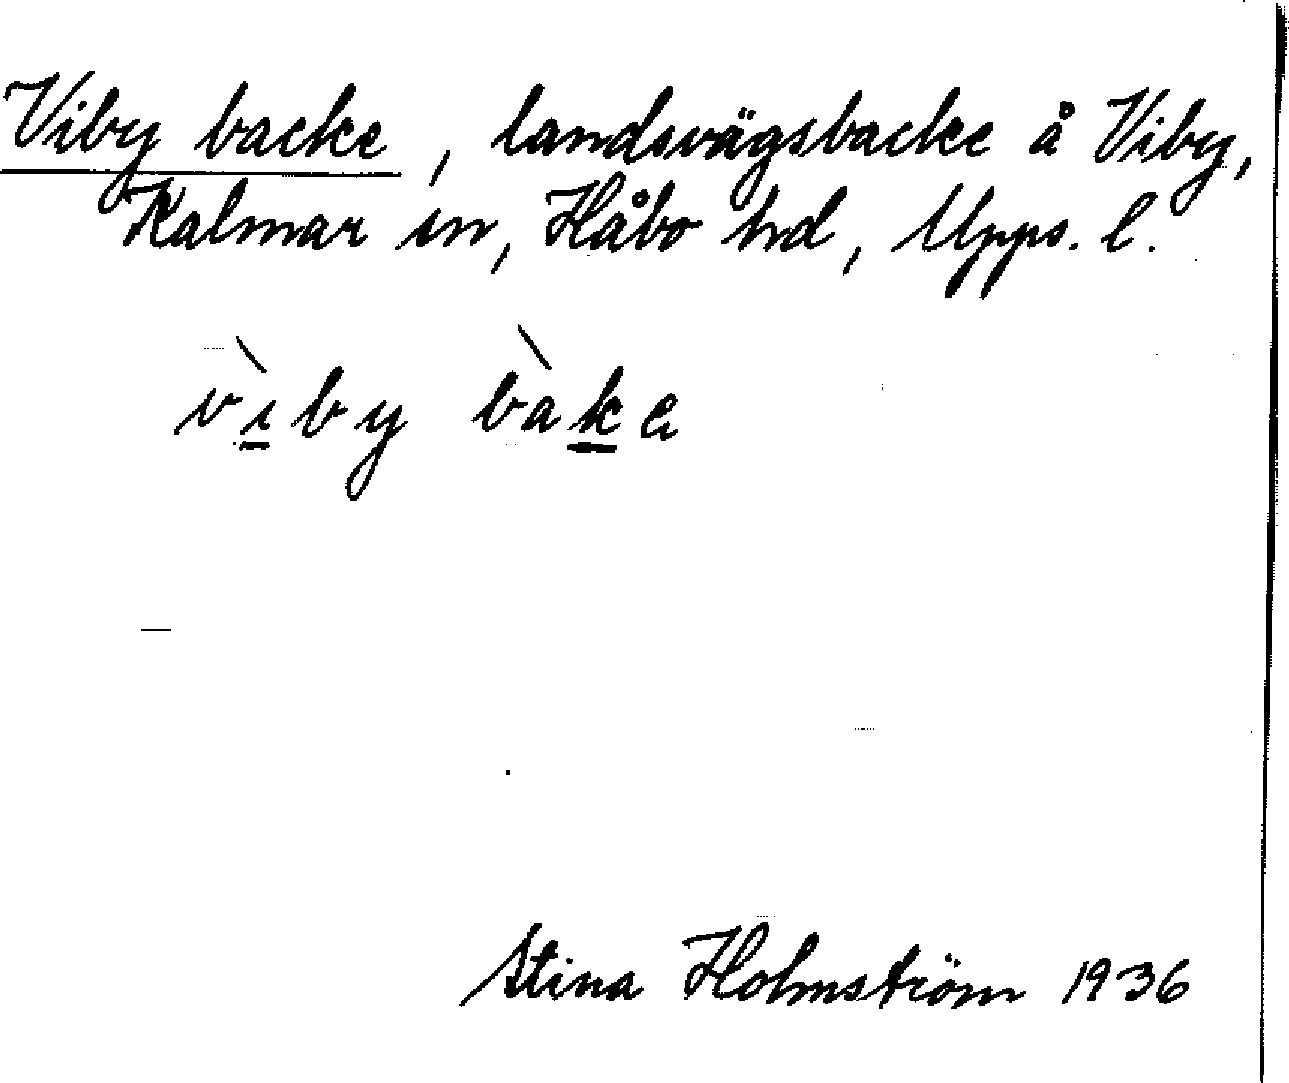 Viby backe, landsvägsbacke å Viby,
Kalmar sn, Håbo hd, Upps. l.
vìby bàke
Stina Holmström 1936